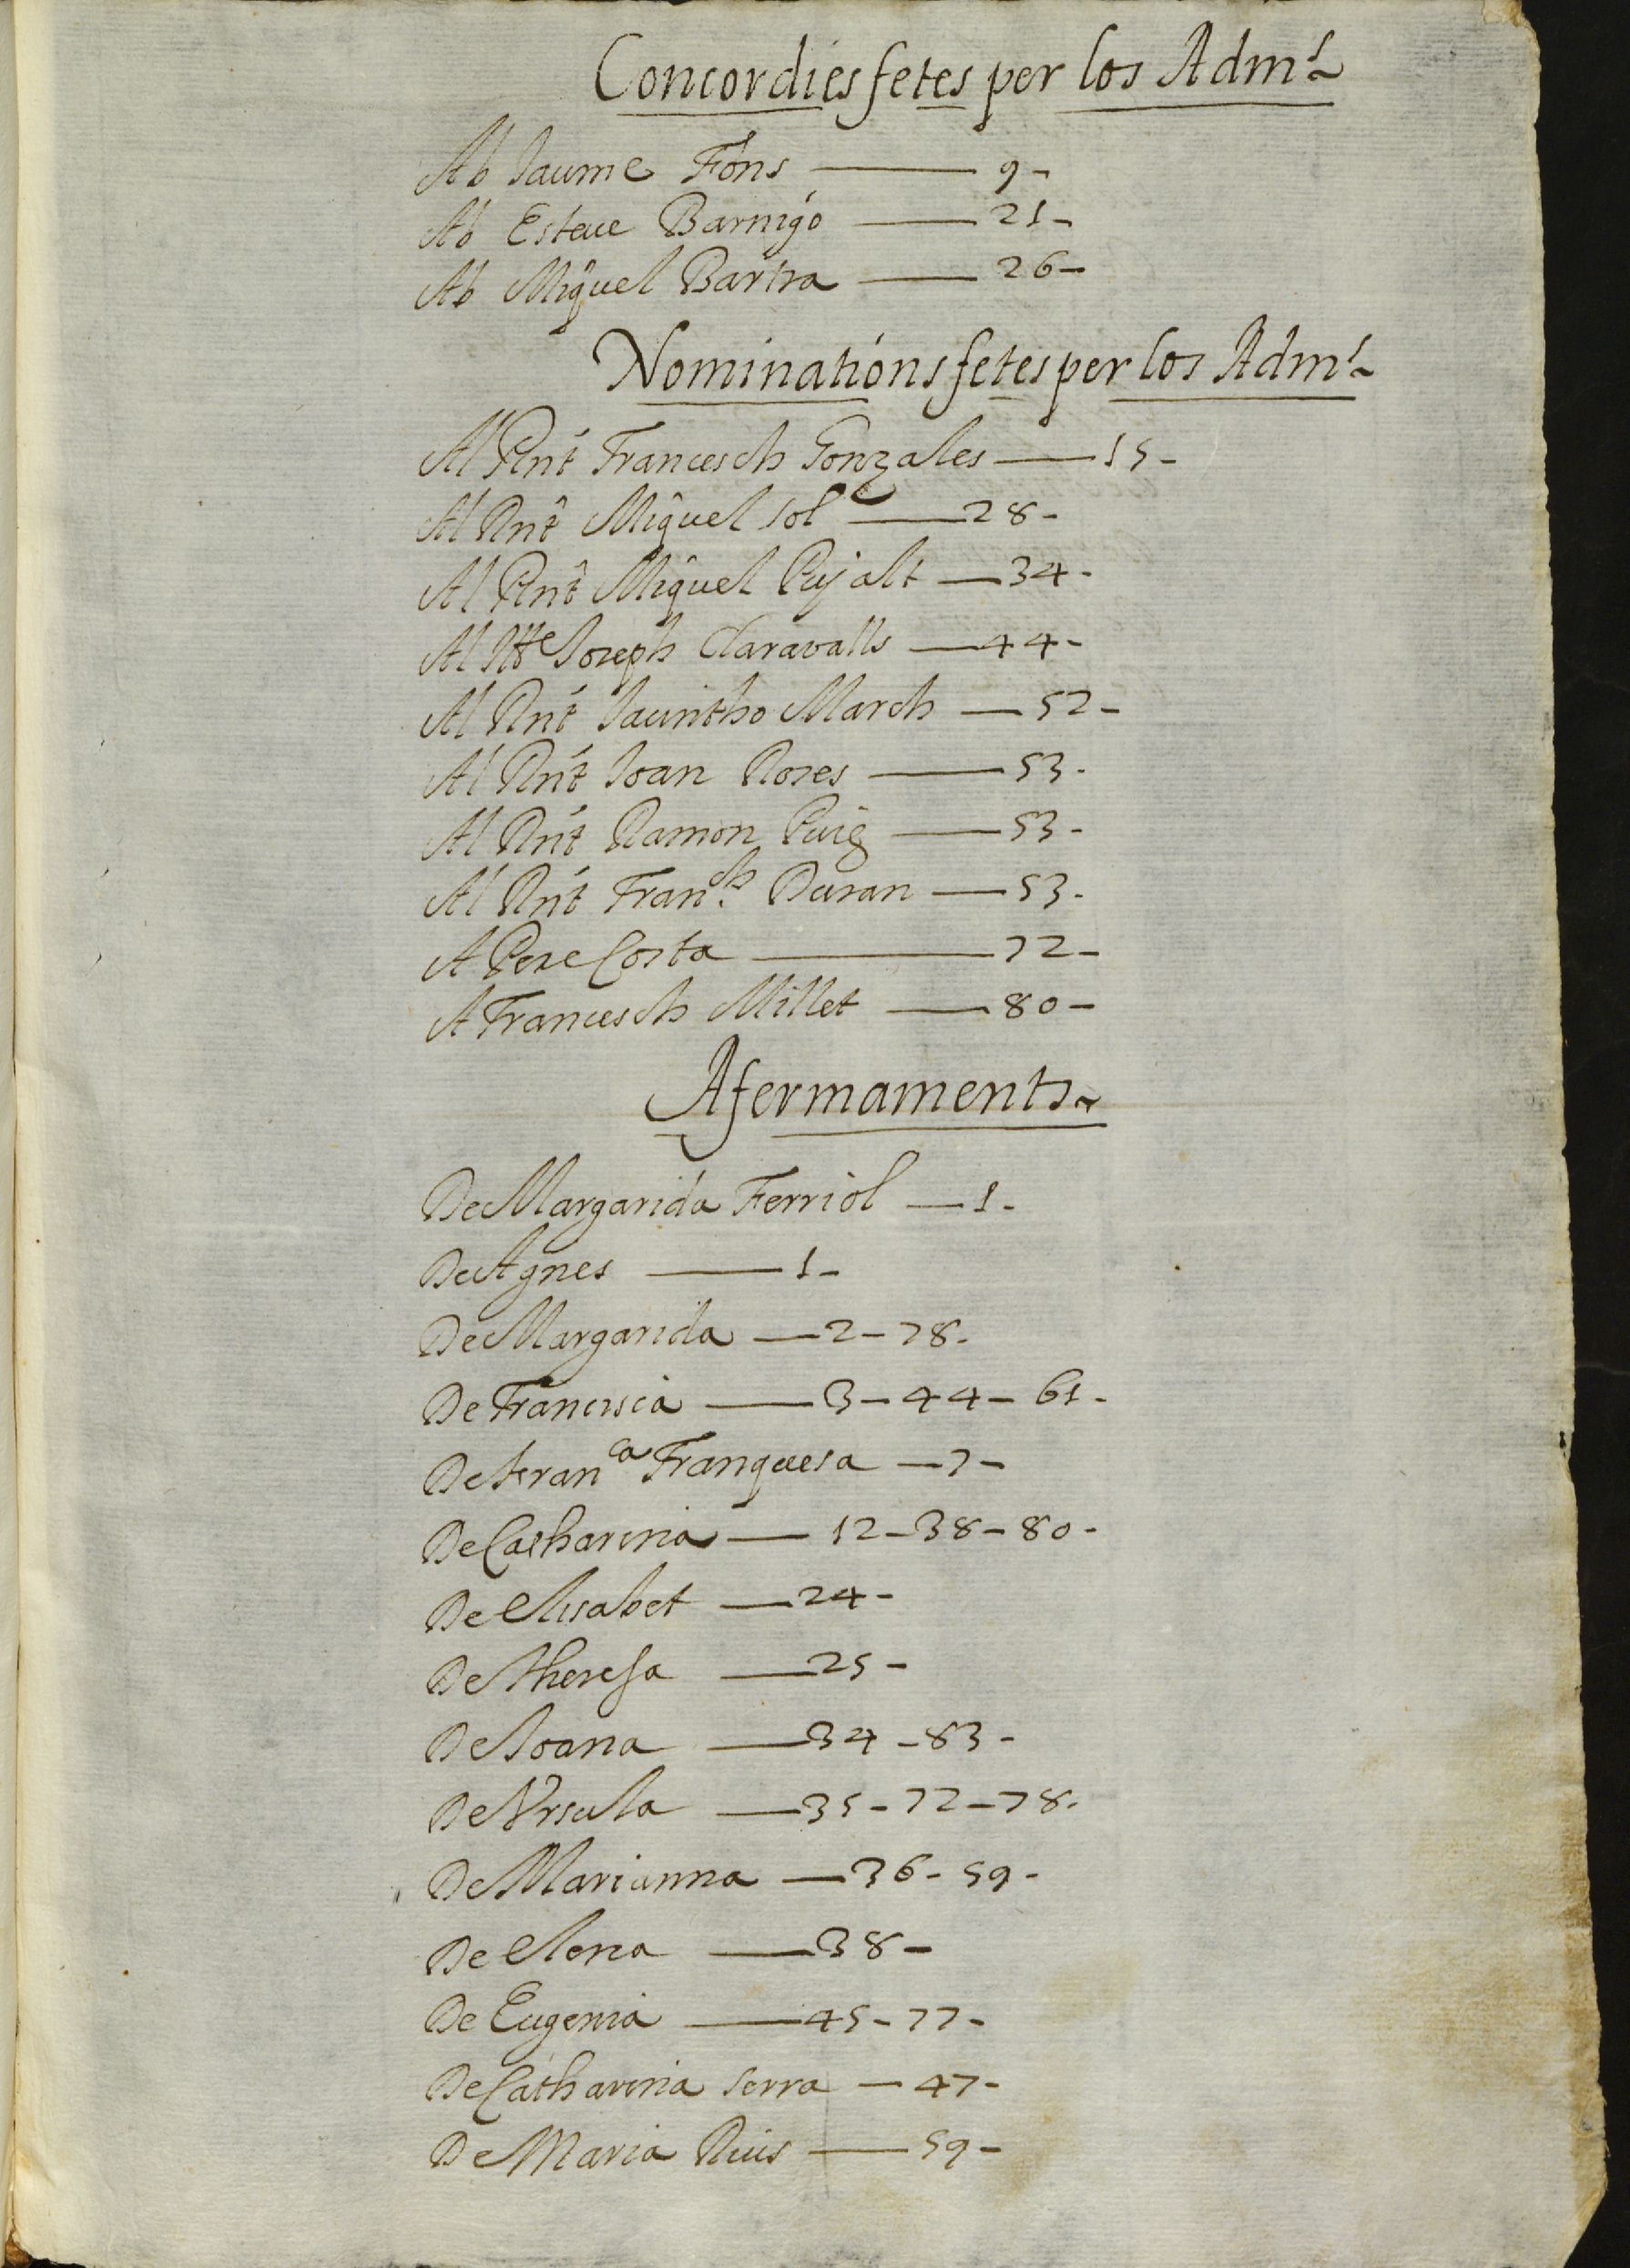 Concordies fetes per los Adm.s
Ab Jaume Fons — 9 -
Ab Esteve Barnigo — 21 -
Ab Miquel Bartra — 26 -
Nominations fetes per los Adm.s
Al Rnt Francesch Gonzales — 15 -
Al Rnt Miquel Sol — 28 -
Al Rnt Miquel Pujalt — 34 -
Al Joseph Claravalls — 44 -
Al Rnt Jacintho March — 52 -
Al Rnt Joan Roses — 53 -
Al Rnt Ramon Puig — 53 -
Al Rnt Fran.ch Duran — 53 -
A Pere Costa — 72 -
A Francesch Millet — 80 -
Afermaments
De Margarida Ferriol — 1 -
De Agnes — 1 -
De Margarida — 2 - 78 -
De Francisca — 3 - 44 - 61 -
De Fran.ca Franquesa — 7 -
De Catharina — 12 - 38 - 80 -
De Elisabet — 24 -
De Theresa — 25 -
De Joana — 34 - 83 -
De Vrsula — 35 - 72 - 78 -
De Marianna — 36 - 59 -
De Elena — 38 -
De Eugenia — 45 - 77 -
De Catharina Serra — 47 -
De Maria Rius — 59 -